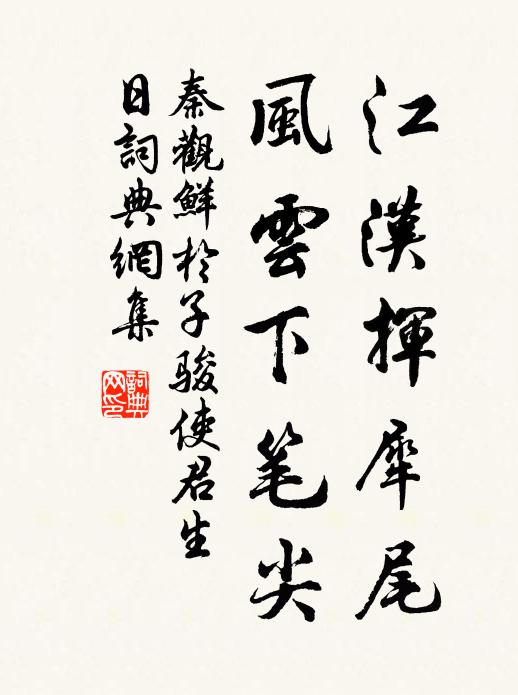 江漢揮犀尾
風雲下笔尖
秦觀鮮於子駿使君生
日詞典網集
詞典
网印